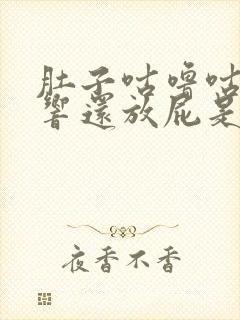 肚子咕噜咕
響還放屁是
夜香不香